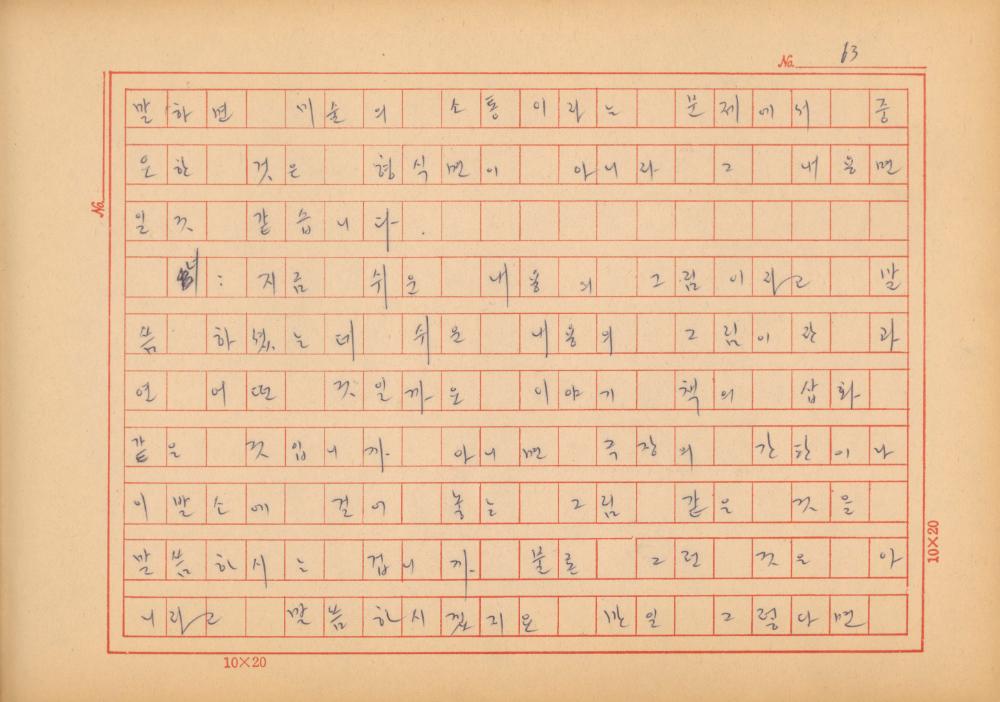 No. 63
말하면 미술의 소통이라는 문제에서 중
요한 것은 형식면이 아니라 그 내용면
일것 같습니다.
녀: 지금 쉬운 내용의 그림이라고 말
씀 하셨는데 쉬운 내용의 그림이란 과
연 어떤 것일까요 이야기 책의 삽화
같은 것입니까 아니면 극장의 간판이나
이발소에 걸어 놓는 그림 같은 것을
말씀하시는 겁니까 물론 그런 것은 아
니라고 말씀하시겠지요 만일 그렇다면
No.
10×20
10×20